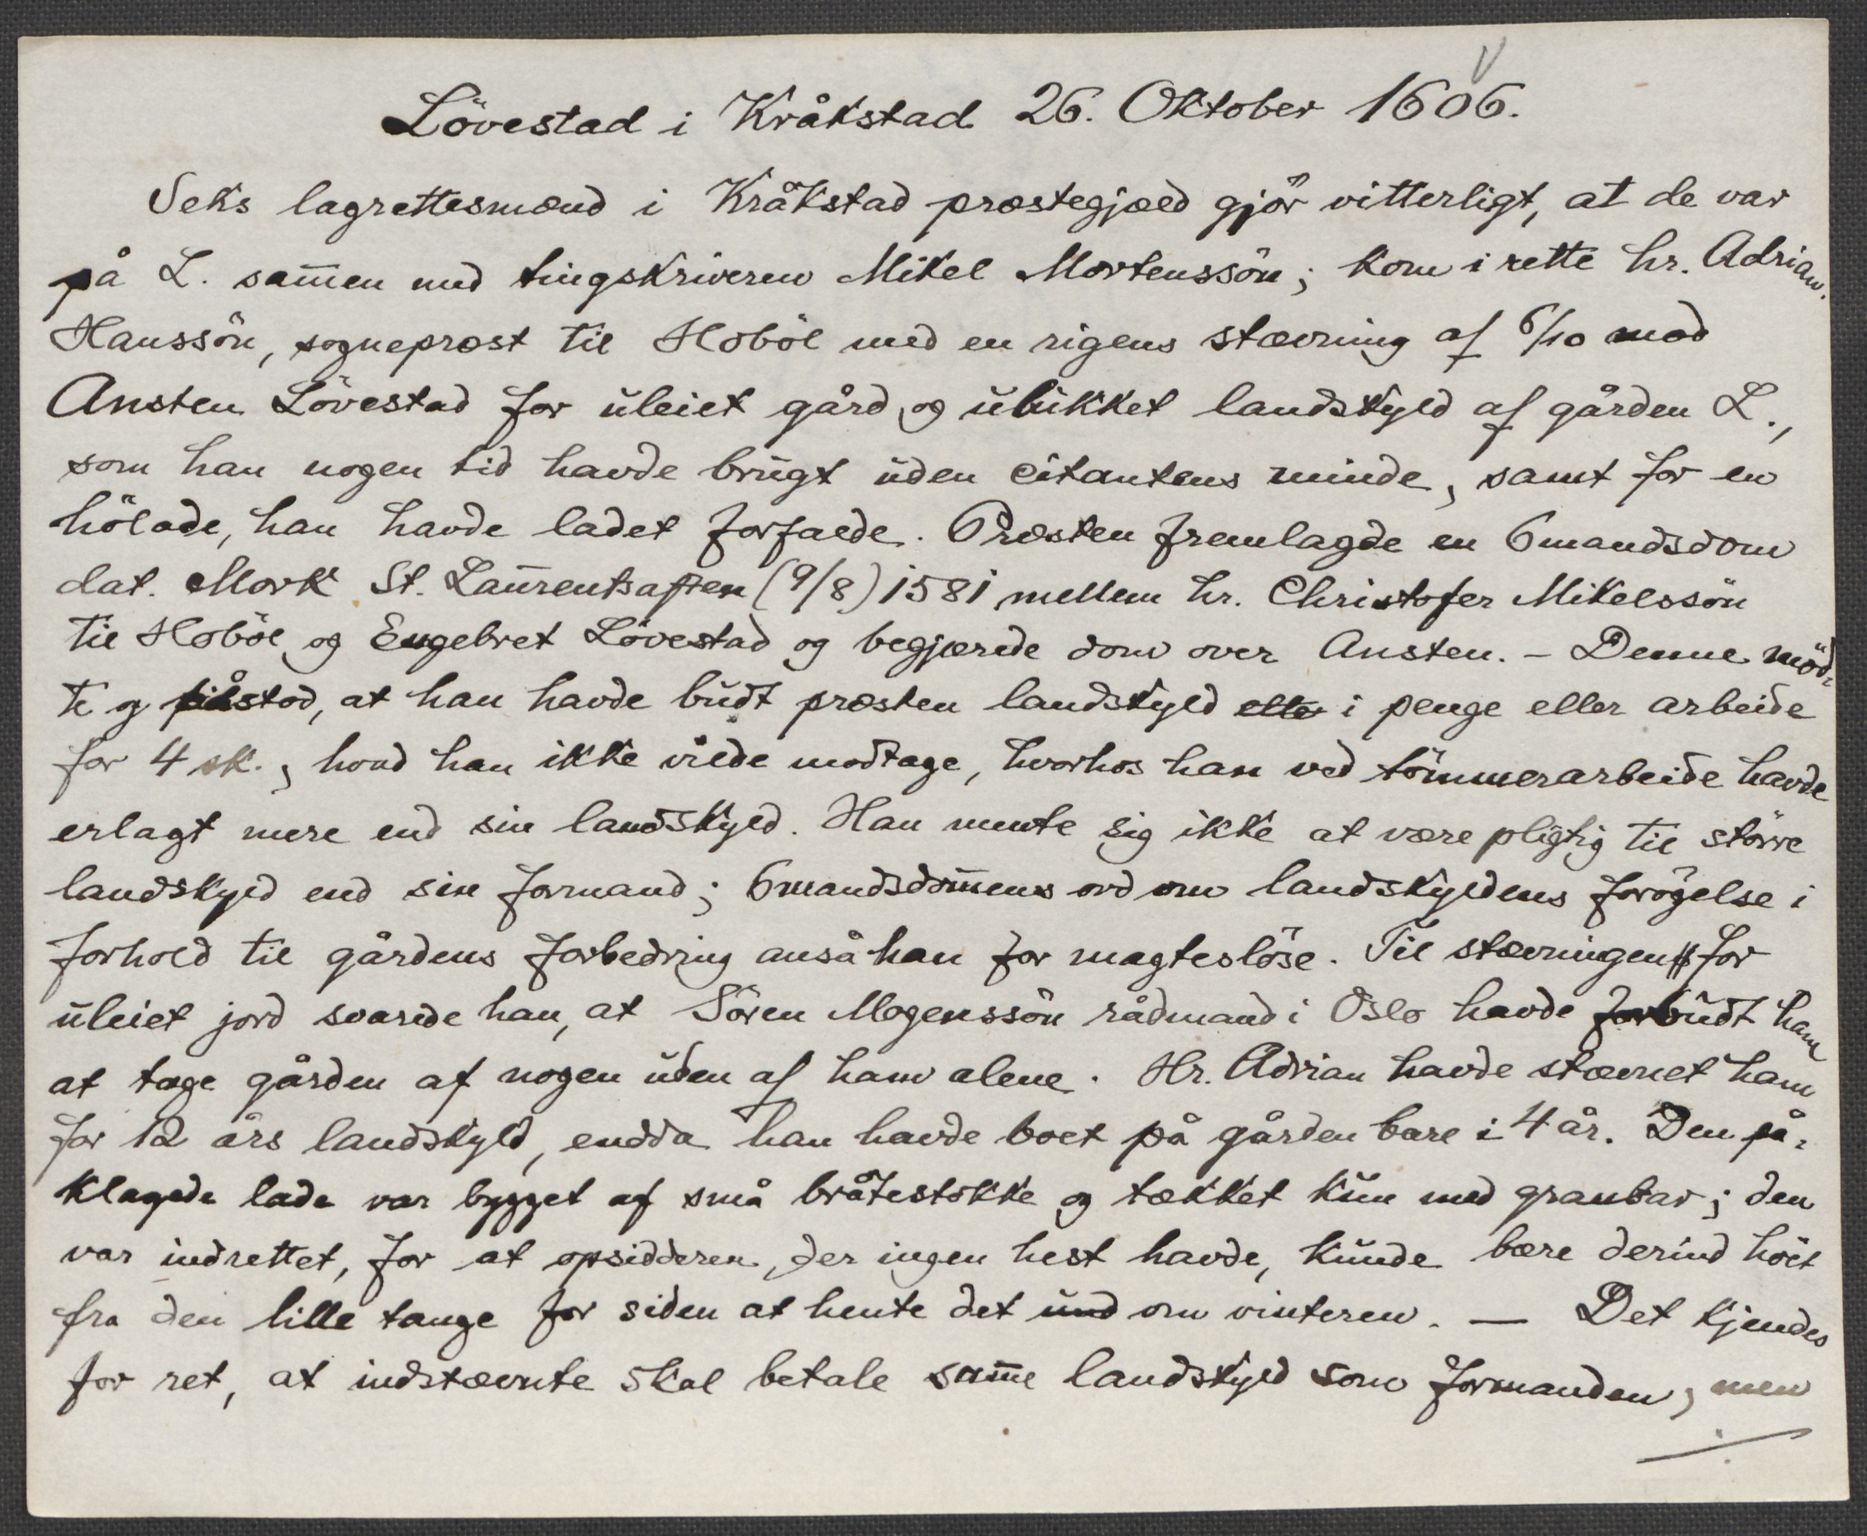 Lövestad i Kråkstad 26. Oktober 1606.
Seks lagrettesmænd i Kråkstad præstegjæld gjör vitterligt, at de var
på L. sam̄en med tingskriveren Mikel Mortenssön; kom i rette hr. Adrian
Hanssön, sogneprest til Hoböl med en rigens stævning af 6/10 mod
Ansten Lövestad for uleiet gård og ubikket landskyld af gården L.,
som han nogen tid havde brugt uden citantens minde, samt for en
hölade, han havde ladet forfalde. Præsten fremlagde en 6mandsdom
dat. Mork St. Laurentsaften (9/8) 1581 mellem hr. Christofer Mikelssön
til Hoböl og Engebret Lövestad og begjærede dom over Ansten. – Denne möd-
te og påstod, at han havde budt præsten landskyld i penge eller arbeide
for 4 sk., hvad han ikke vilde modtage, hvorhos han ved tömmerarbeide havde
erlagt mere end sin landskyld. Han mente sig ikke at være pligtig til större
landskyld end sin formand; 6mandsdom̄ens ord om landskyldens forögelse i
forhold til gårdens forbedring anså han for magteslöse. Til stævningen for
uleiet jord svarede han, at Sören Mogenssön rådmand i Oslo havde forbudt ham
at tage gården af nogen uden af ham alene. Hr. Adrian havde stævnet ham
for 12 års landskyld, endda han havde boet på gården bare i 4 år. Den på-
klagede lade var bygget af små bråtestokke og tækket kun med granbar; den
var indrettet, for at opsidderen, der ingen hest havde, kunde bære derind höet
fra den lille tange for siden at hente det om vinteren. — Det kjendes
for ret, at indstævnte skal betale sam̄e landskyld som formanden, men
./.